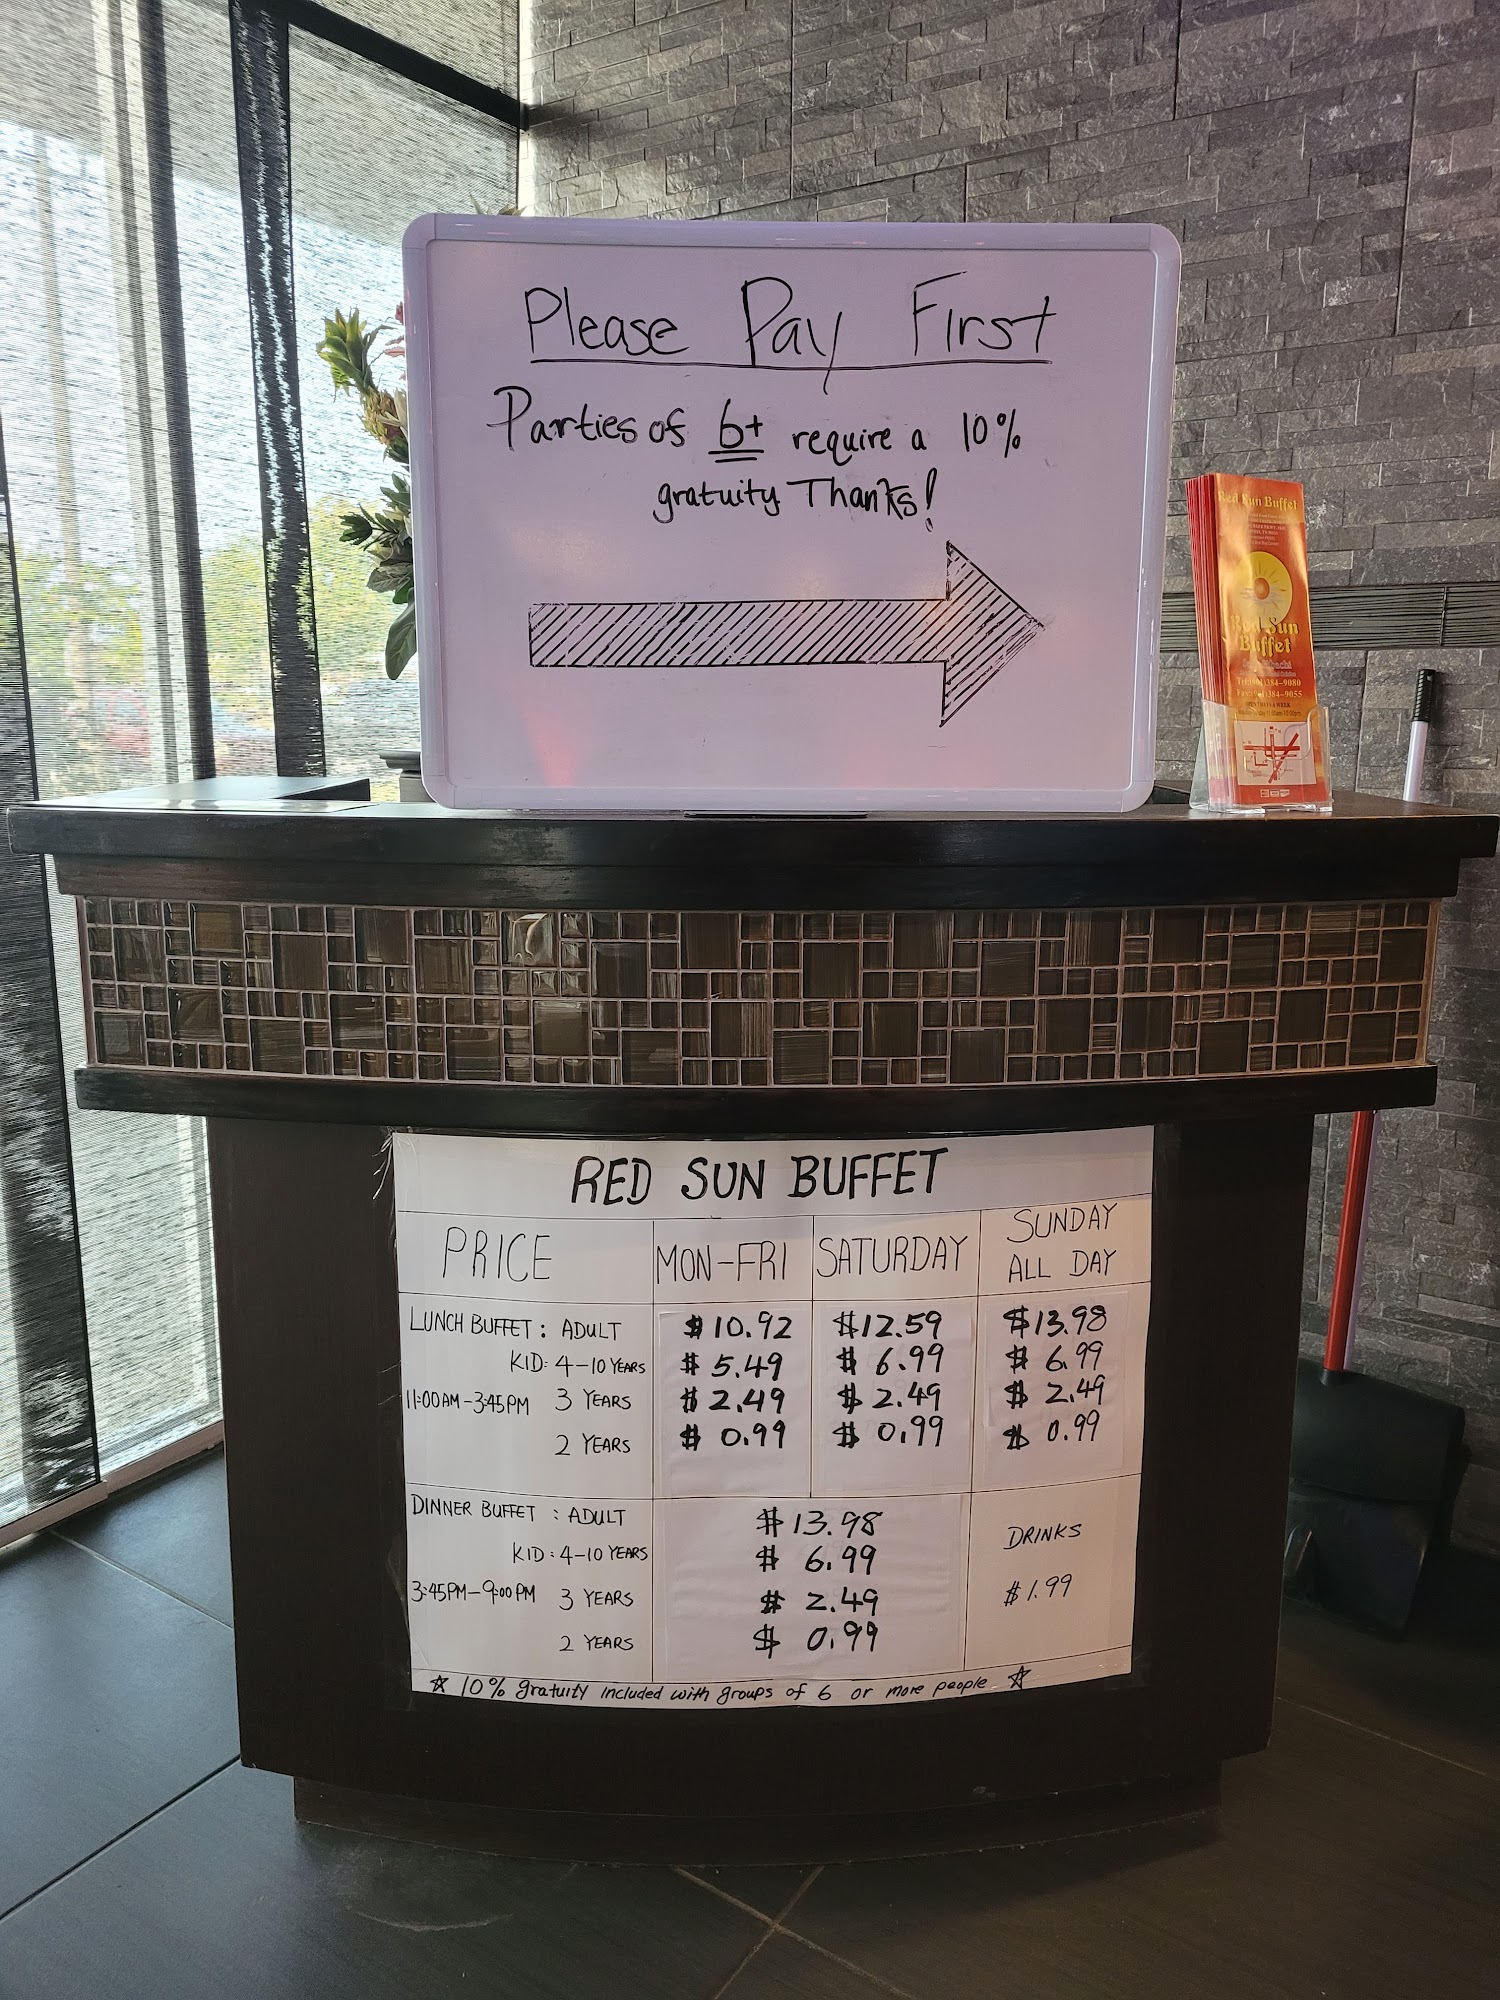 Please Pay First
Parties of 6+ require a 10%
gratuity Thanks!
Red Sun Buffet
Red Sun
Buffet
384-9080
384-9055
RED SUN BUFFET
PRICE MON-FRI SATURDAY SUNDAY ALL DAY
LUNCH BUFFET: ADULT $10.92 $12.59 $13.98
KID: 4-10 YEARS $5.49 $6.99 $6.99
11:00AM-3:45PM 3 YEARS $2.49 $2.49 $2.49
2 YEARS $0.99 $0.99 $0.99
DINNER BUFFET: ADULT $13.98
KID: 4-10 YEARS $6.99
3:45PM-9:00PM 3 YEARS $2.49
2 YEARS $0.99
DRINKS
$1.99
☆ 10% gratuity included with groups of 6 or more people ☆